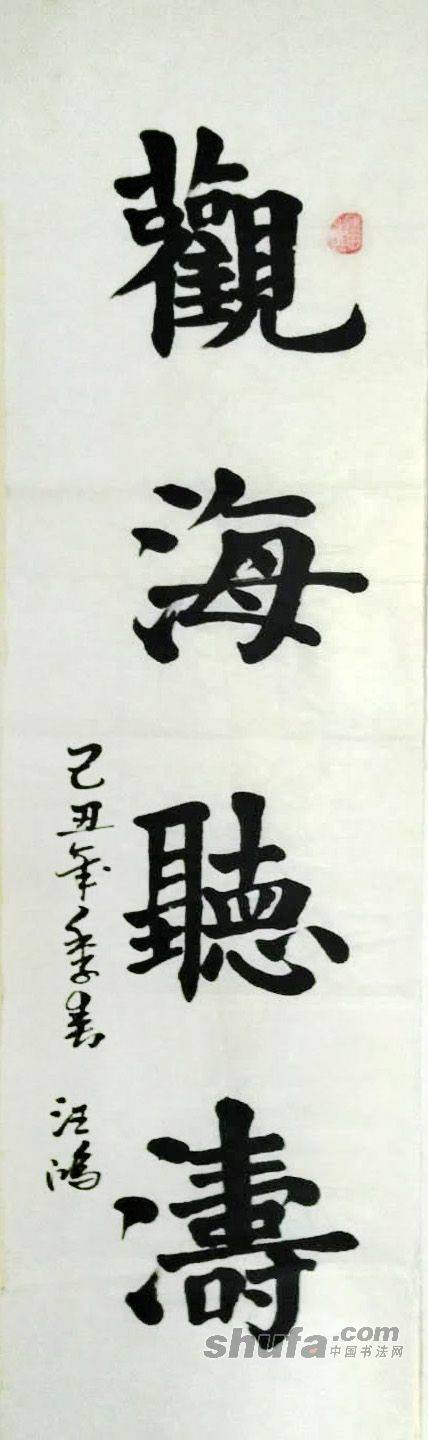 觀海聽濤
己丑年季春 汪鴻
shufa.com
中国书法网